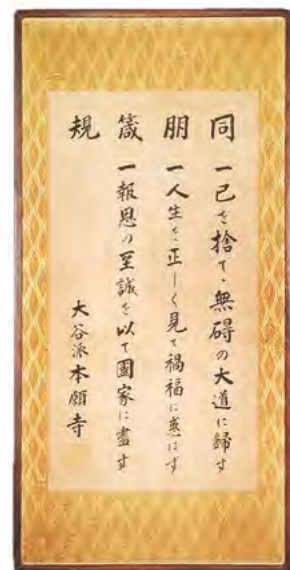 同朋箴規
一己を捨てゝ無碍の大道に歸す
一人生を正しく見て禍福に惑はす
一報恩の至誠を以て國家に盡す
大谷派本願寺